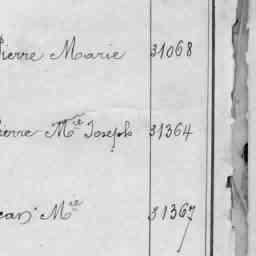 Pierre Marie 31068
Pierre Mie Joseph 31364
Jean Mie 31367